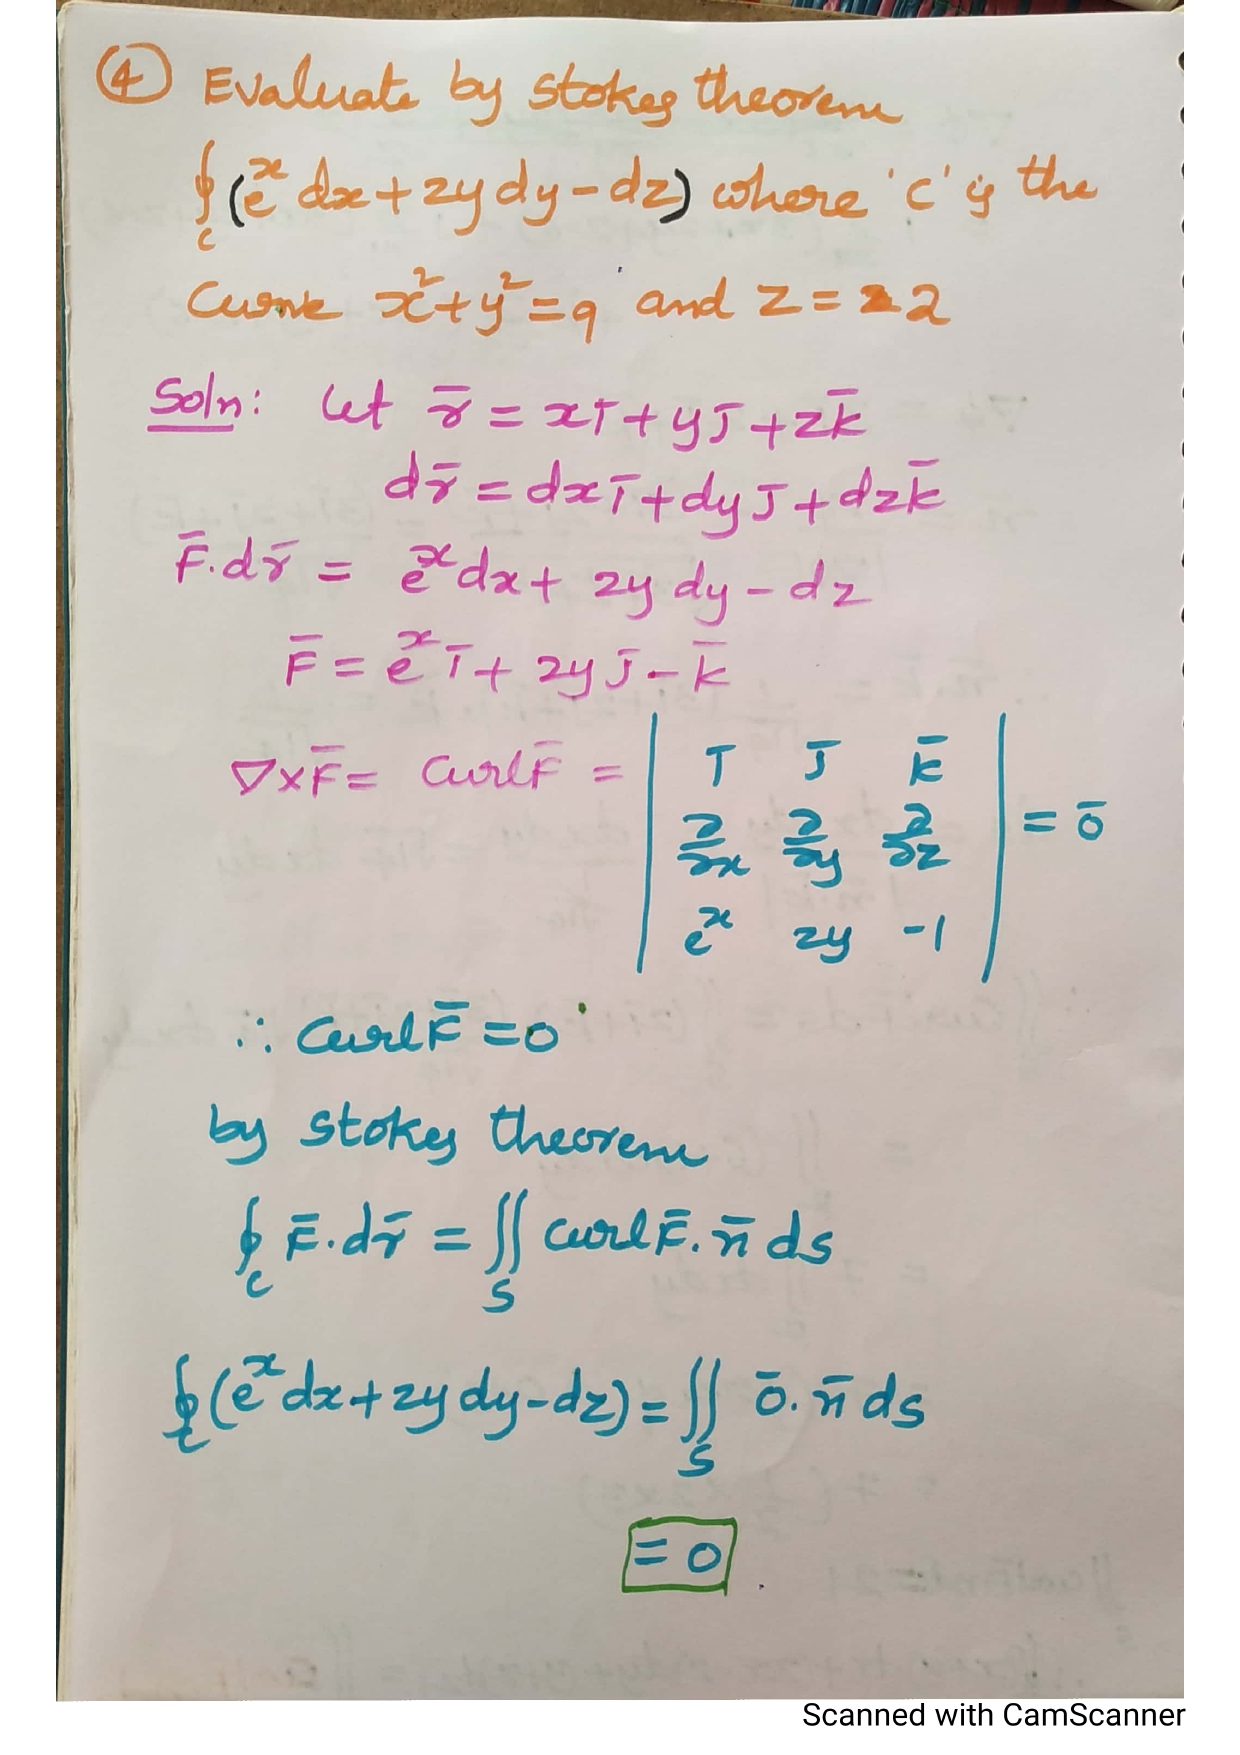 ④ Evaluate by stokes theorem
∮_c (e^x dx + 2y dy - dz) where 'c' is the
Curve x²+y²=9 and z = 2
Soln: Let r̄ = xī + yj̄ + zk̄
dr̄ = dx ī + dy j̄ + dz k̄
F̄.dr̄ = e^x dx + 2y dy - dz
F̄ = e^x ī + 2y j̄ - k̄
∇×F̄ = Curl F̄ = | ī j̄ k̄ |
| ∂/∂x ∂/∂y ∂/∂z | = 0̄
| e^x 2y -1 |
∴ Curl F̄ = 0
by stokes theorem
∮_c F̄.dr̄ = ∬_S curl F̄. n̄ ds
∮_c (e^x dx + 2y dy - dz) = ∬_S 0̄. n̄ ds
= 0
Scanned with CamScanner